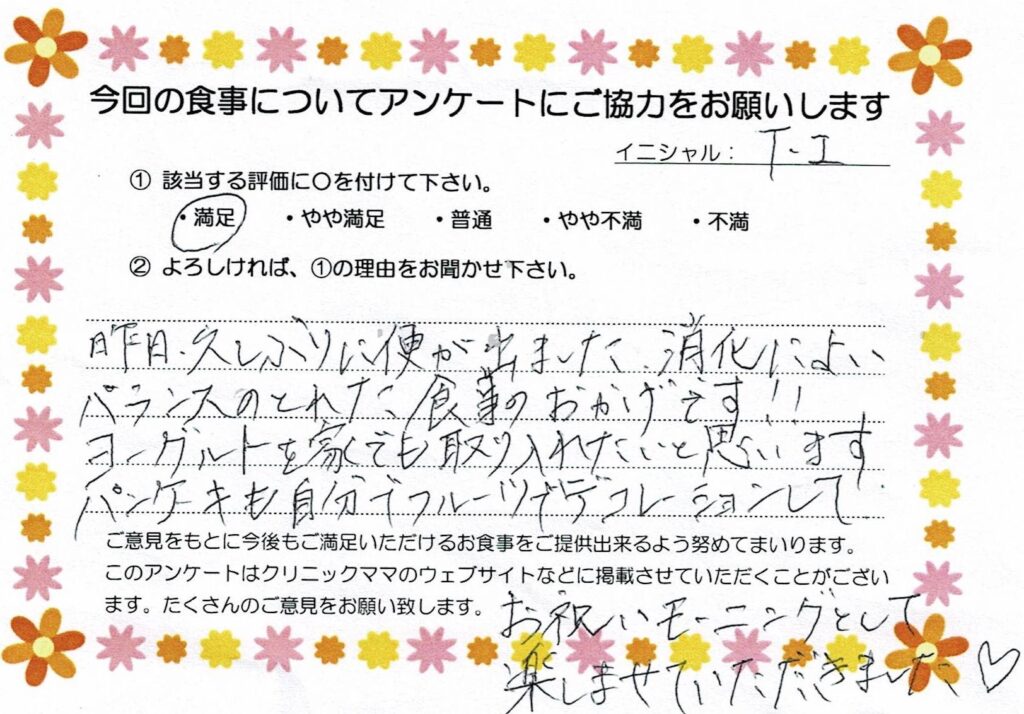 今回の食事についてアンケートにご協力をお願いします
イニシャル： T-I
① 該当する評価に○を付けて下さい。
・満足 ・やや満足 ・普通 ・やや不満 ・不満
② よろしければ、①の理由をお聞かせ下さい。
昨日、久しぶりに便が出ました、消化によい
バランスのとれた食事のおかげです!!
ヨーグルトを家でも取り入れたいと思います
パンケーキも自分でフルーツでデコレーションして
ご意見をもとに今後もご満足いただけるお食事をご提供出来るよう努めてまいります。
このアンケートはクリニックママのウェブサイトなどに掲載させていただくことがござい
ます。たくさんのご意見をお願い致します。
お祝いモーニングとして
楽しませていただきました♡